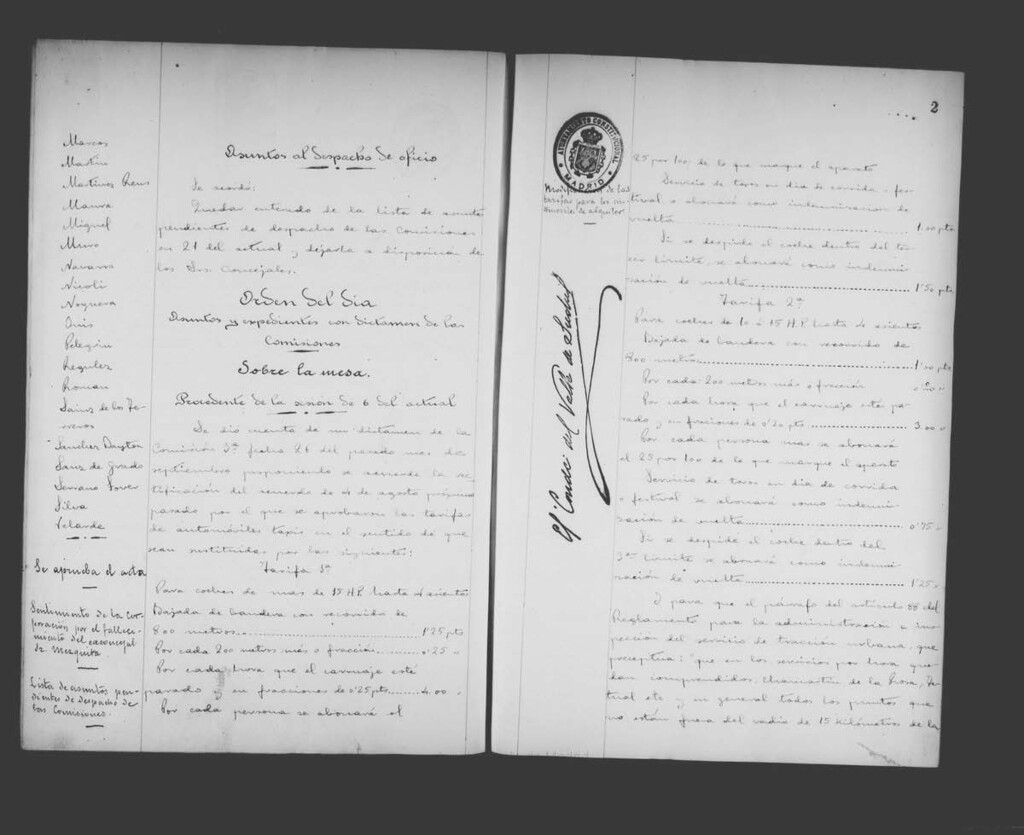 Marcos
Martin
Martinez Reus
Maura
Miguel
Muro
Navarro
Nicoli
Noguera
Onis
Pelegrin
Regulez
Roman
Sainz de los Te-
rreros
Sanchez Bayton
Sanz de Grado
Serrano Jover
Silva
Velarde
Se aprueba el acta
Sentimiento de la Cor-
poración por el falleci-
miento del exconcejal
Sr. Mezquita
Lista de asuntos pen-
dientes de despacho de
las Comisiones.
Asuntos al despacho de oficio
Se acordó:
Quedar enterado de la lista de asuntos
pendientes de despacho de las Comisiones
en 21 del actual y dejarla a disposición de
los Srs. Concejales.
Orden del dia
Asuntos y expedientes con dictamen de las
Comisiones
Sobre la mesa.
Procedente de la sesión de 6 del actual
Se dio cuenta de un dictamen de la
Comisión 3ª fecha 26 del pasado mes de
septiembre proponiendo se acuerde la rec-
tificación del acuerdo de 4 de agosto próximo
pasado por el que se aprobaron las tarifas
de automóviles taxis en el sentido de que
sean sustituidas por las siguientes:
Tarifa 1ª
Para coches de mas de 15 H.P. hasta 4 asientos
Bajada de bandera con recorrido de
800 metros 1'25 pts
Por cada 200 metros más o fracción 0'25 "
Por cada hora que el carruaje esté
parado y en fracciones de 0'25 pts 4'00 "
Por cada persona se abonará el
2
AYUNTAMIENTO CONSTITUCIONAL
MADRID
de las
tarifas para los
de alquiler
El Conde del Valle de Suchil
25 por 100 de lo que marque el aparato
Servicio de taxis en dia de corrida o fes-
tival, se abonará como indemnizacion de
vuelta 1'50 pts
Si se despide el coche dentro del ter-
cer límite, se abonará como indemni-
zación de vuelta 1'50 pts
Tarifa 2ª
Para coches de 10 a 15 H.P. hasta 4 asientos
Bajada de bandera con recorrido de
800 metros pts
Por cada 200 metros más o fracción
Por cada hora que el carruaje este pa-
rado y en fracciones de 3'00 "
Por cada persona mas se abonará
el 25 por 100 de lo que marque el aparato
Servicio de taxis en dia de corrida
o festival se abonará como indemni-
zación de vuelta 0'75 "
Si se despide el coche dentro del
3er límite se abonará como indemni-
zación de vuelta 1'25 "
Y para que el párrafo del articulo 55 del
Reglamento para la administración e ins-
pección del servicio de tracción urbana, que
preceptua: "que en los servicios por hora que-
dan comprendidos: Chamartin de la Rosa,
etc. y en general todos los puntos que
no están fuera del radio de 15 kilómetros de la